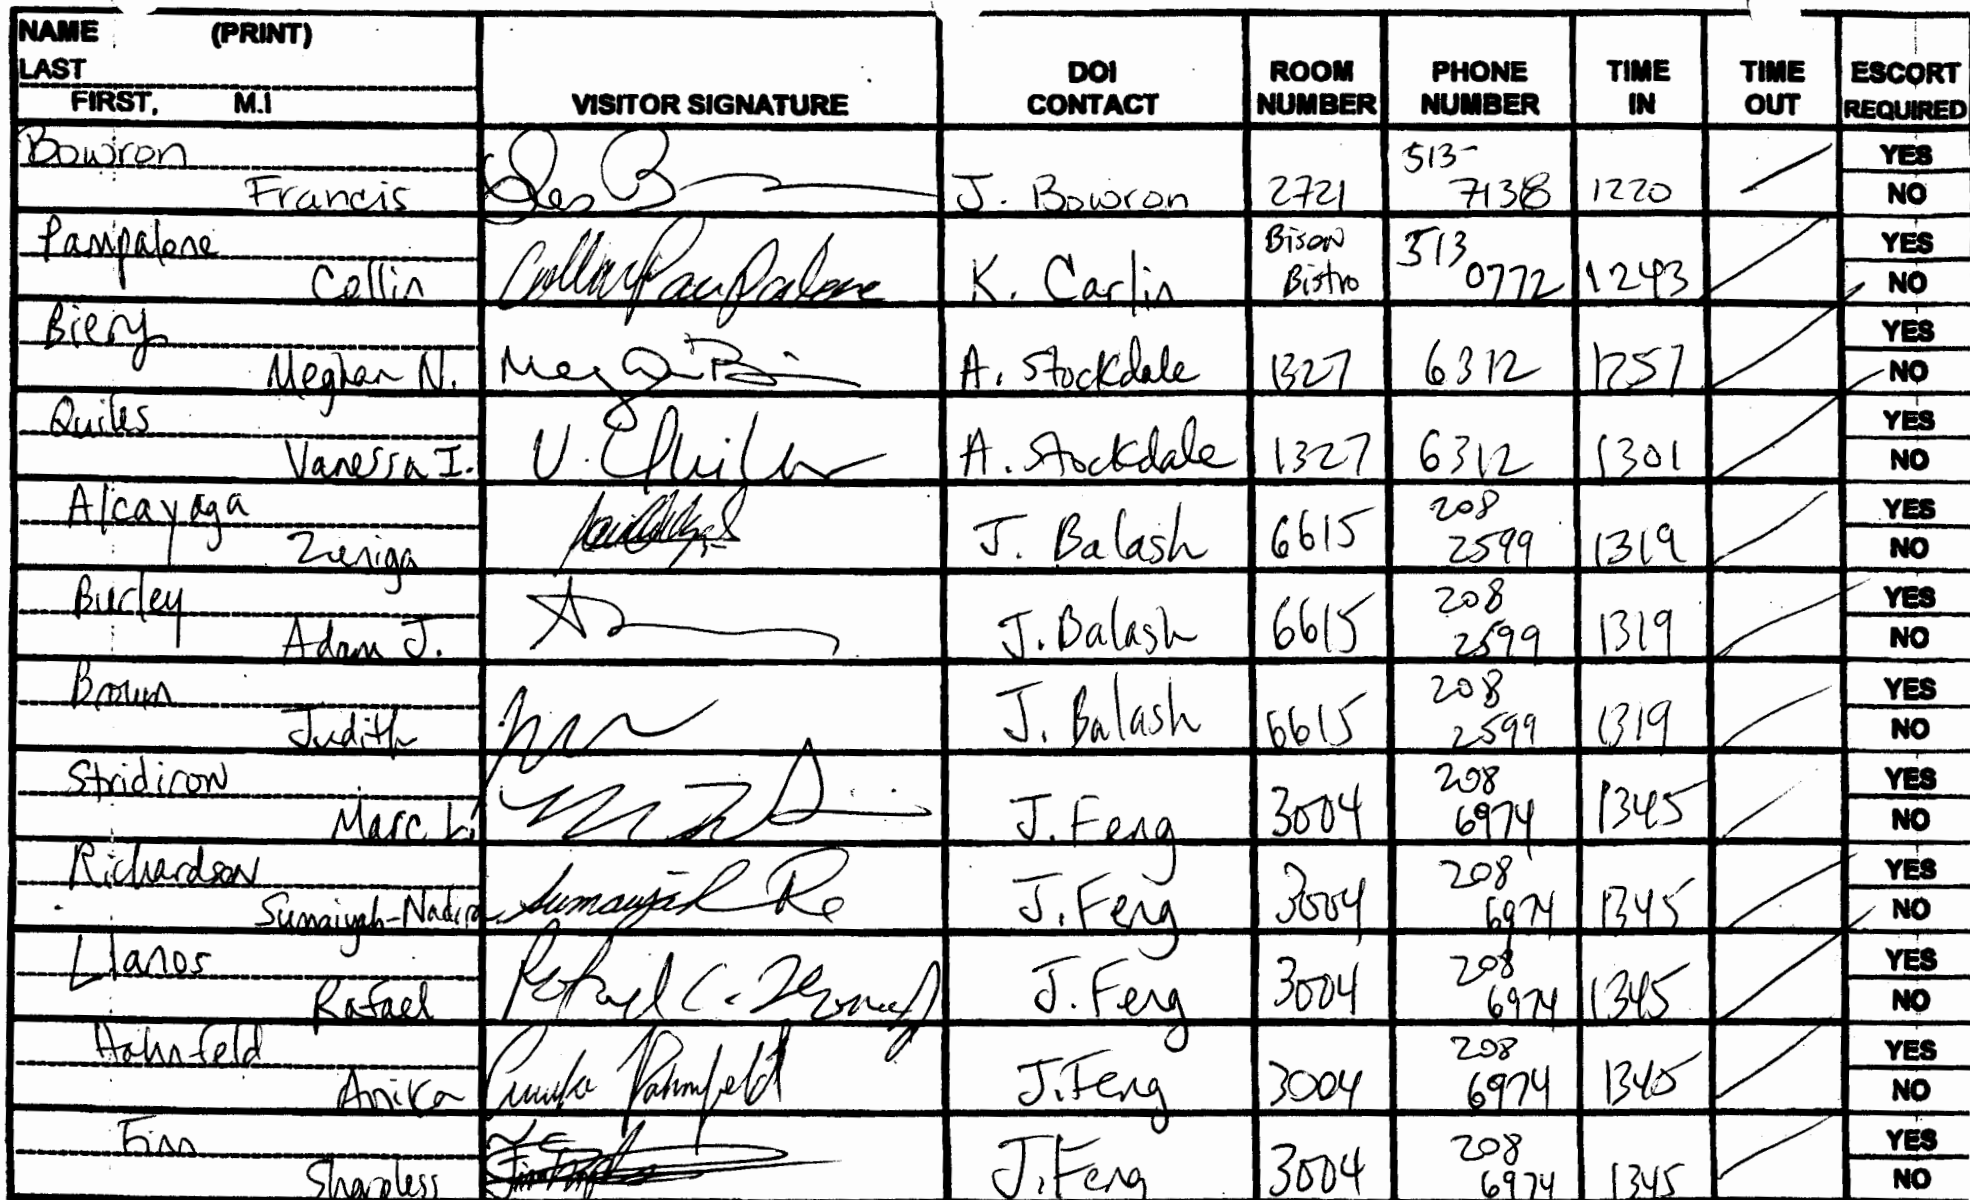 NAME (PRINT)
LAST
FIRST, M.I
VISITOR SIGNATURE
DOI CONTACT
ROOM NUMBER
PHONE NUMBER
TIME IN
TIME OUT
ESCORT REQUIRED
Bowron
Francis
J. Bowron 2721 513- 7138 1220 YES NO
Pampalone
Collin
Collin Pampalone K. Carlin Bison Bistro 513 0772 1243 YES NO
Biery
Meghan N.
A. Stockdale 1327 6312 1257 YES NO
Quiles
Vanessa I.
V. Quiles A. Stockdale 1327 6312 1301 YES NO
Alcayaga
Zuniga
J. Balash 6615 208 2599 1319 YES NO
Burley
Adam J.
J. Balash 6615 208 2599 1319 YES NO
Brown
Judith
J. Balash 6615 208 2599 1319 YES NO
Stridiron
Marc
J. Feng 3004 208 6974 1345 YES NO
Richardson
Sumaiyah-Nadira
J. Feng 3004 208 6974 1345 YES NO
Llanos
Rafael
Rafael C. J. Feng 3004 208 6974 1345 YES NO
Hahnfeld
Anika
Anika Hahnfeld J. Feng 3004 208 6974 1345 YES NO
Finn
Shapless
J. Feng 3004 208 6974 1345 YES NO